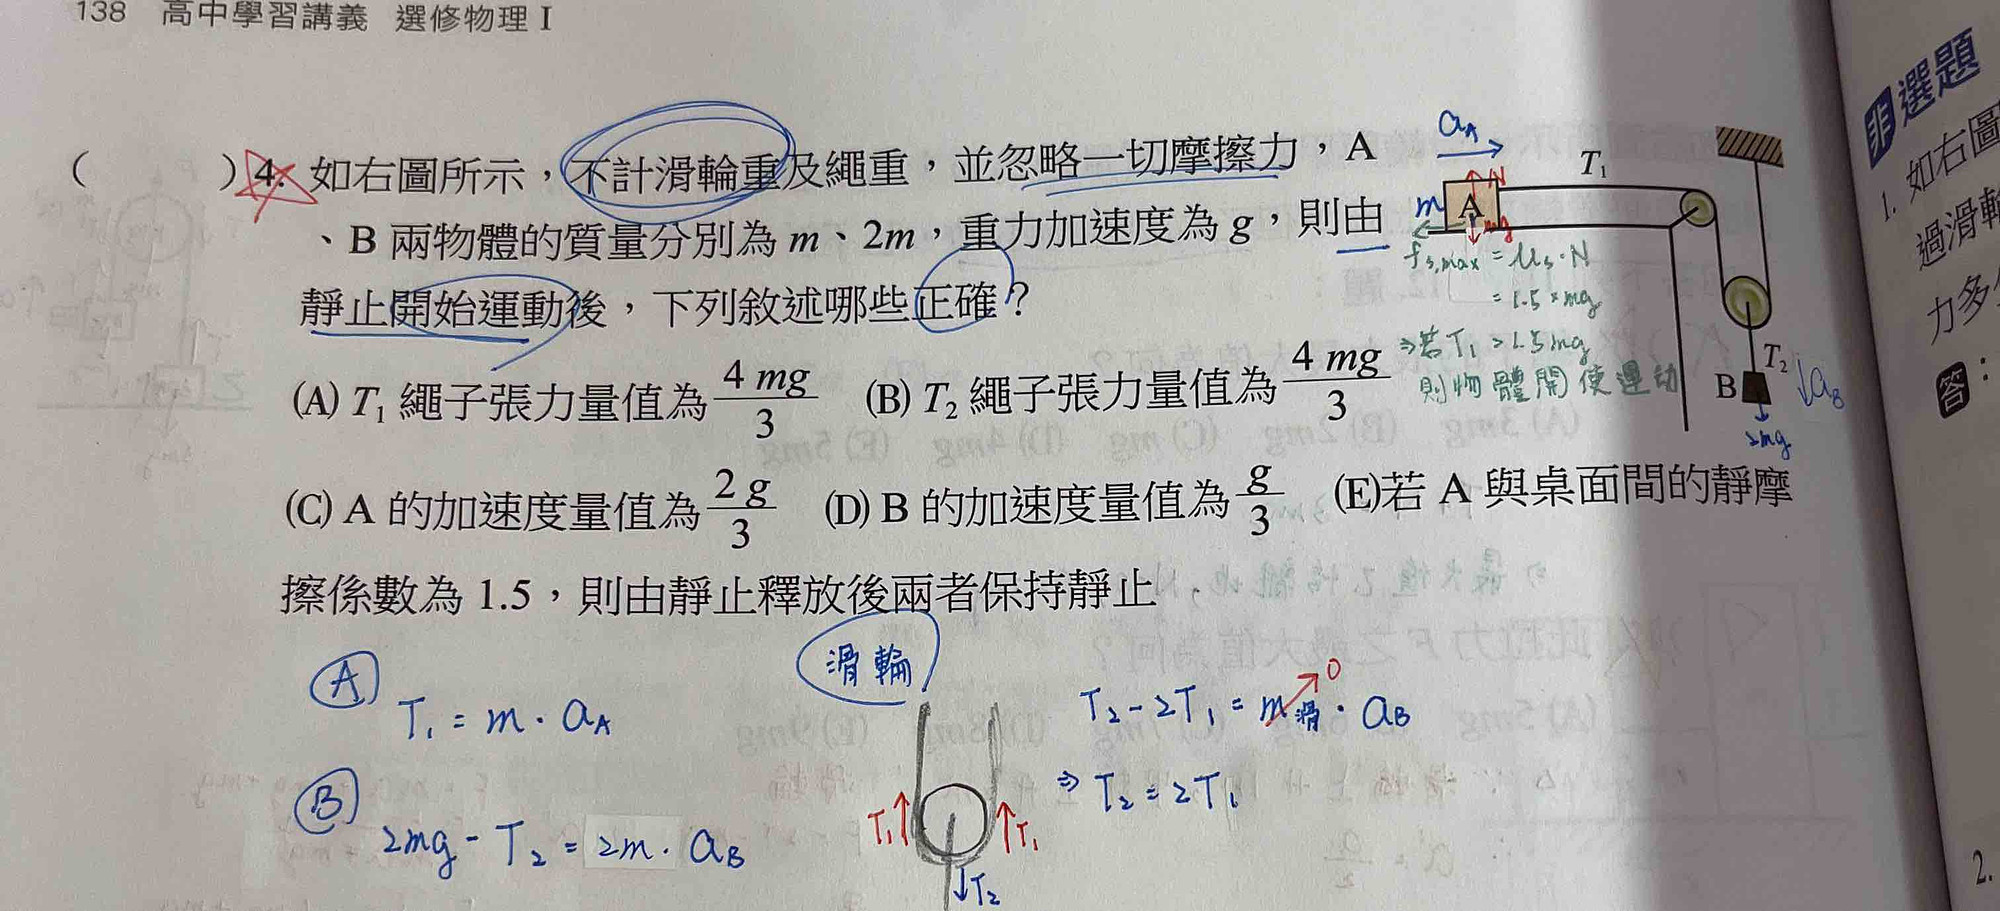 138 高中學習講義 選修物理 I
( )4. 如右圖所示，不計滑輪重及繩重，並忽略一切摩擦力，A
、B 兩物體的質量分別為 m、2m，重力加速度為 g，則由
靜止開始運動後，下列敘述哪些正確？
(A) T₁ 繩子張力量值為 4 mg/3 (B) T₂ 繩子張力量值為 4 mg/3
(C) A 的加速度量值為 2 g/3 (D) B 的加速度量值為 g/3 (E)若 A 與桌面間的靜摩
擦係數為 1.5，則由靜止釋放後兩者保持靜止
a_A
T₁
m A N
mg
f s,max = μs·N
= 1.5 × mg
⇒若 T₁ > 1.5mg
則物體開使運动
T₂
B
a_B
2mg
Ⓐ T₁ = m · a_A
Ⓑ 2mg - T₂ = 2m · a_B
滑輪
T₁ T₁
T₂
T₂ - 2T₁ = m滑 · a_B
0
⇒ T₂ = 2T₁
非選題
1. 如右圖
過滑輪
力多
答：
2.